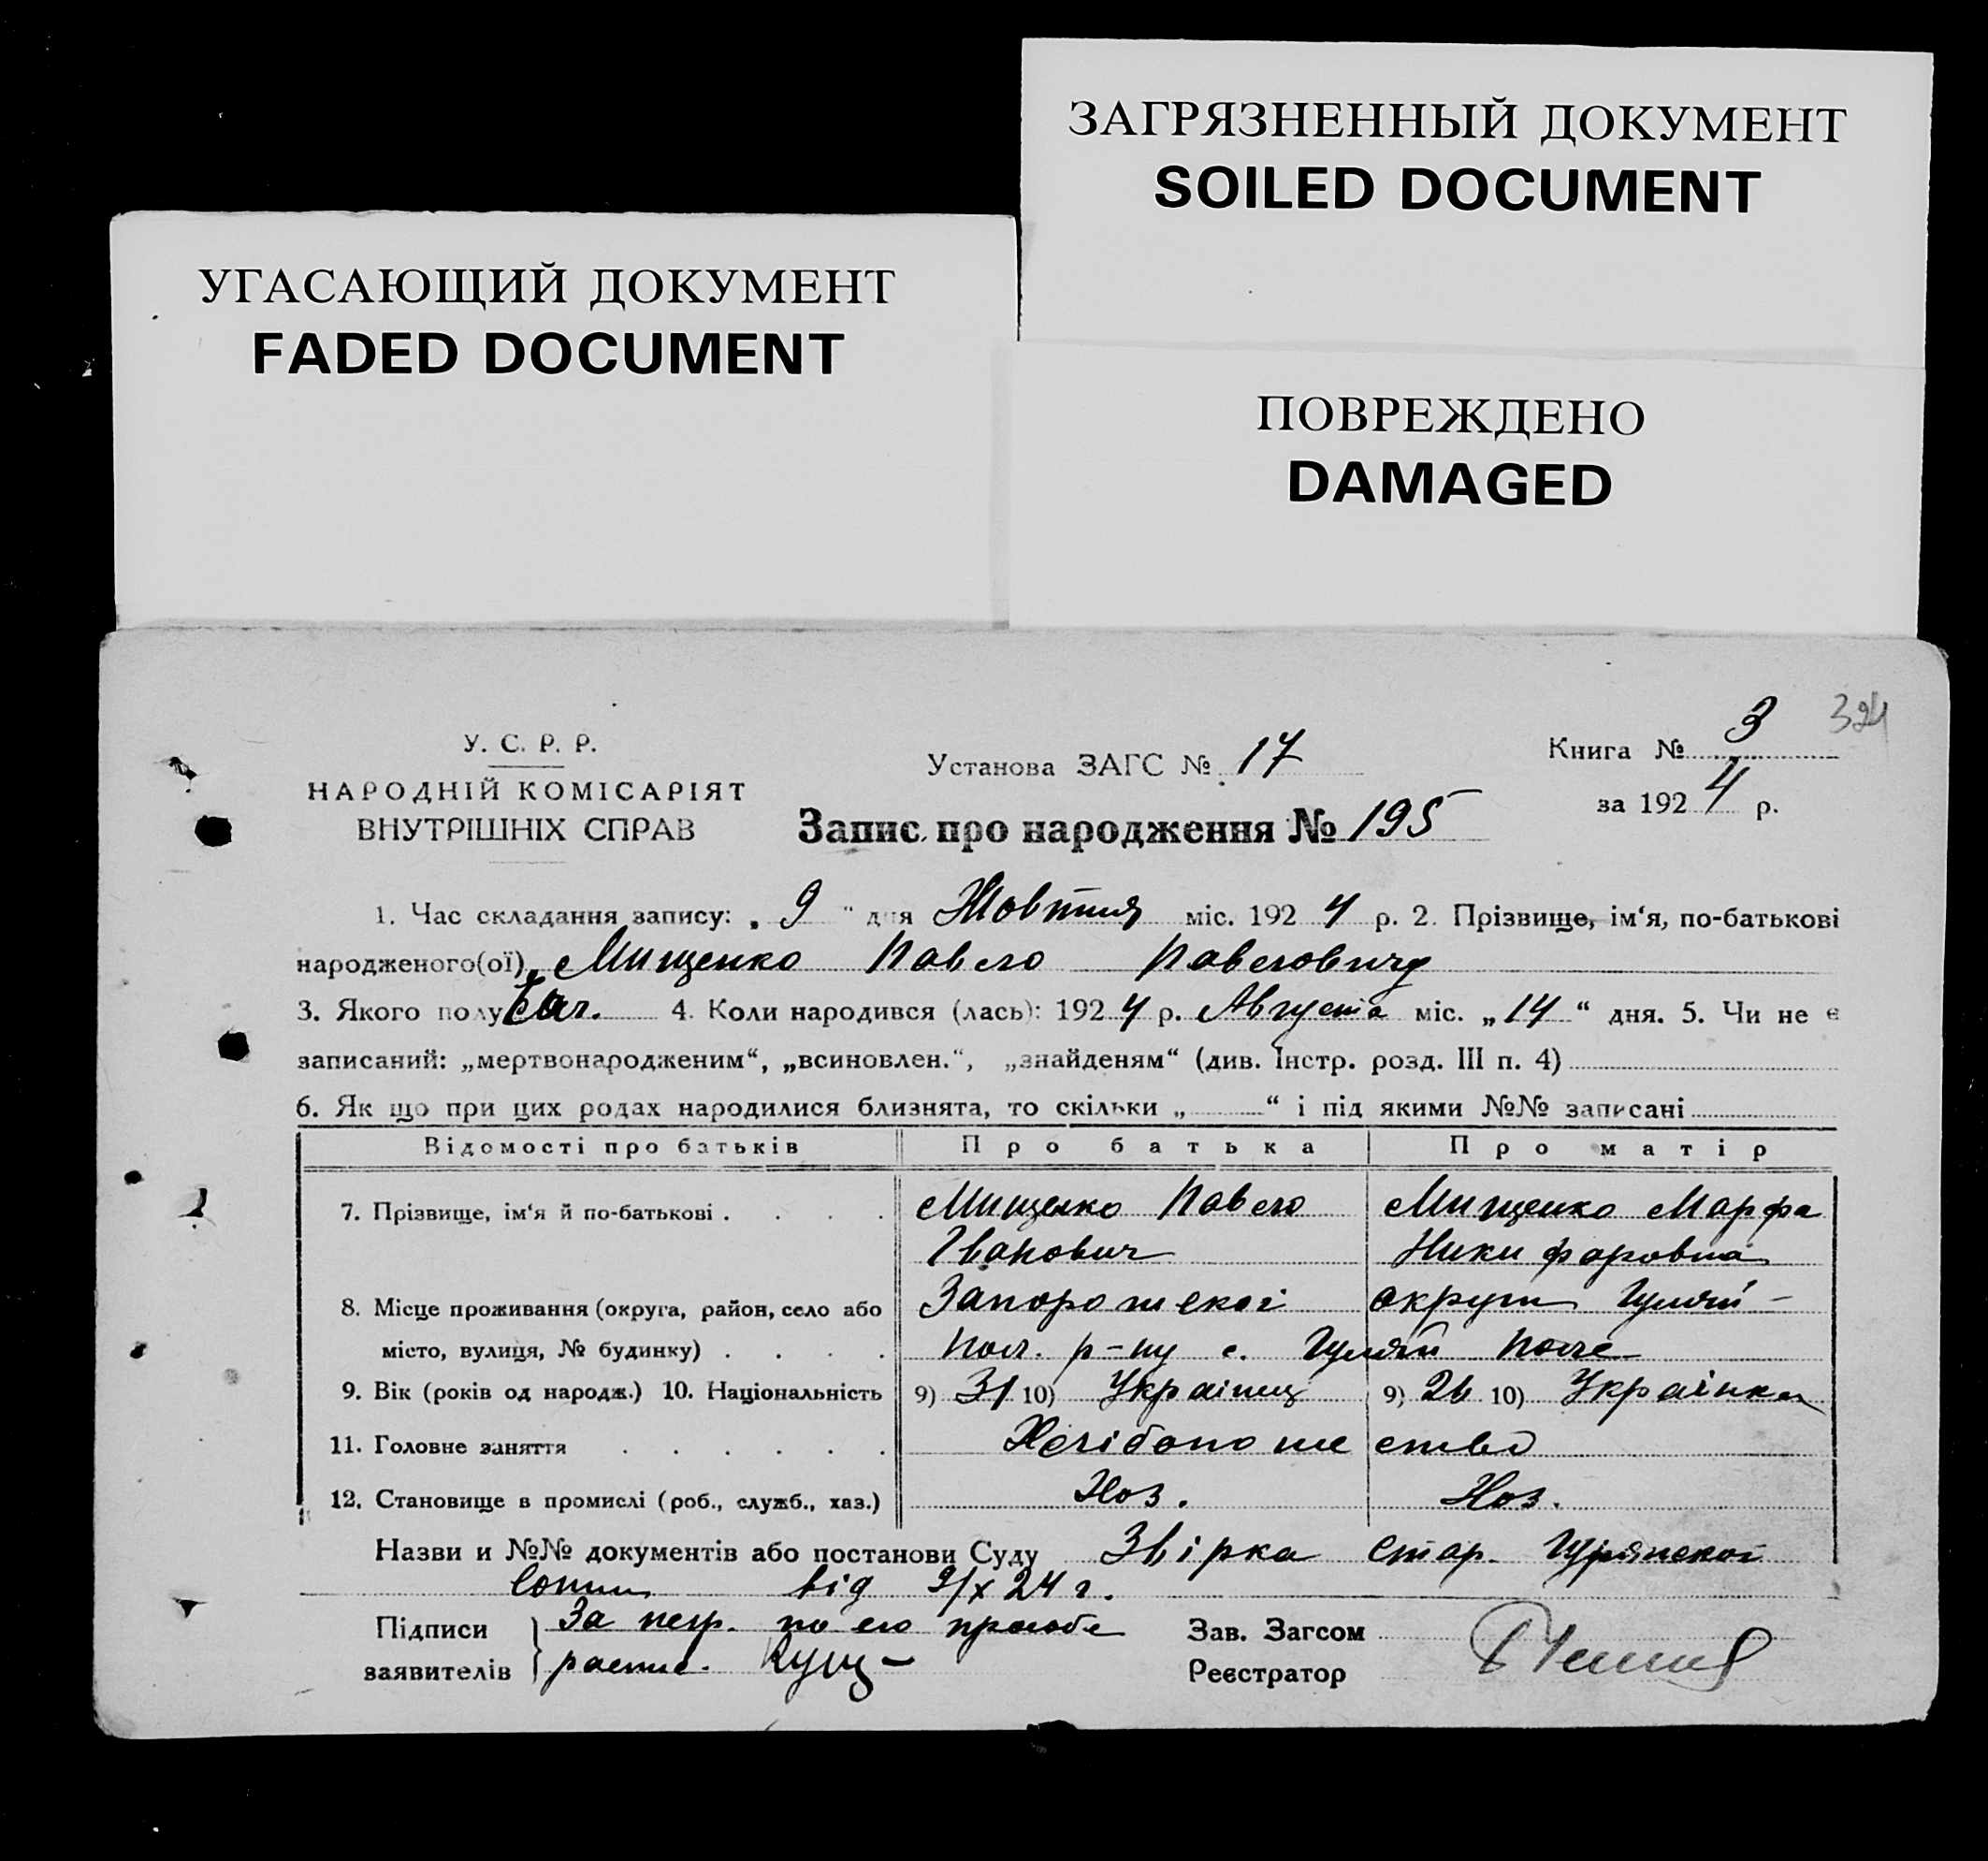 ЗАГРЯЗНЕННЫЙ ДОКУМЕНТ
SOILED DOCUMENT
УГАСАЮЩИЙ ДОКУМЕНТ
FADED DOCUMENT
ПОВРЕЖДЕНО
DAMAGED
324
У. С. Р. Р.
НАРОДНІЙ КОМІСАРІЯТ
ВНУТРІШНІХ СПРАВ
Установа ЗАГС № 17
Книга № 3
за 1924 р.
Запис про народження № 195
1. Час складання запису: „ 9 " дня Жовтня міс. 1924 р. 2. Прізвище, ім'я, по-батькові
народженого(ої) Мищенко Павло Павлович
3. Якого полу 4. Коли народився (лась): 1924 р. Августа міс. „14" дня. 5. Чи не є
записаний: „мертвонародженим", „всиновлен.", „знайденям" (див. Інстр. розд. III п. 4)
6. Як що при цих родах народилися близнята, то скільки „ " і під якими №№ записані
Відомості про батьків Про батька Про матір
7. Прізвище, ім'я й по-батькові . . . . Мищенко Павло Мищенко Марфа
Іванович Никифоровна
8. Місце проживання (округа, район, село або Запорожскої округи Гуляй-
місто, вулиця, № будинку) . . . . Пол. р-ну с. Гуляй Поле
9. Вік (років од народж.) 10. Національність 9) 31 10) Українец 9) 26 10) Українка
11. Головне заняття . . . . . . Хлібопашество
12. Становище в промислі (роб., служб., хаз.) Хоз. Хоз.
Назви и №№ документів або постанови Суду Звірка стар.
Сотни від 9/X 24 г.
Підписи За негр. по его прозьбе Зав. Загсом
заявителів распис. Кущ Реєстратор